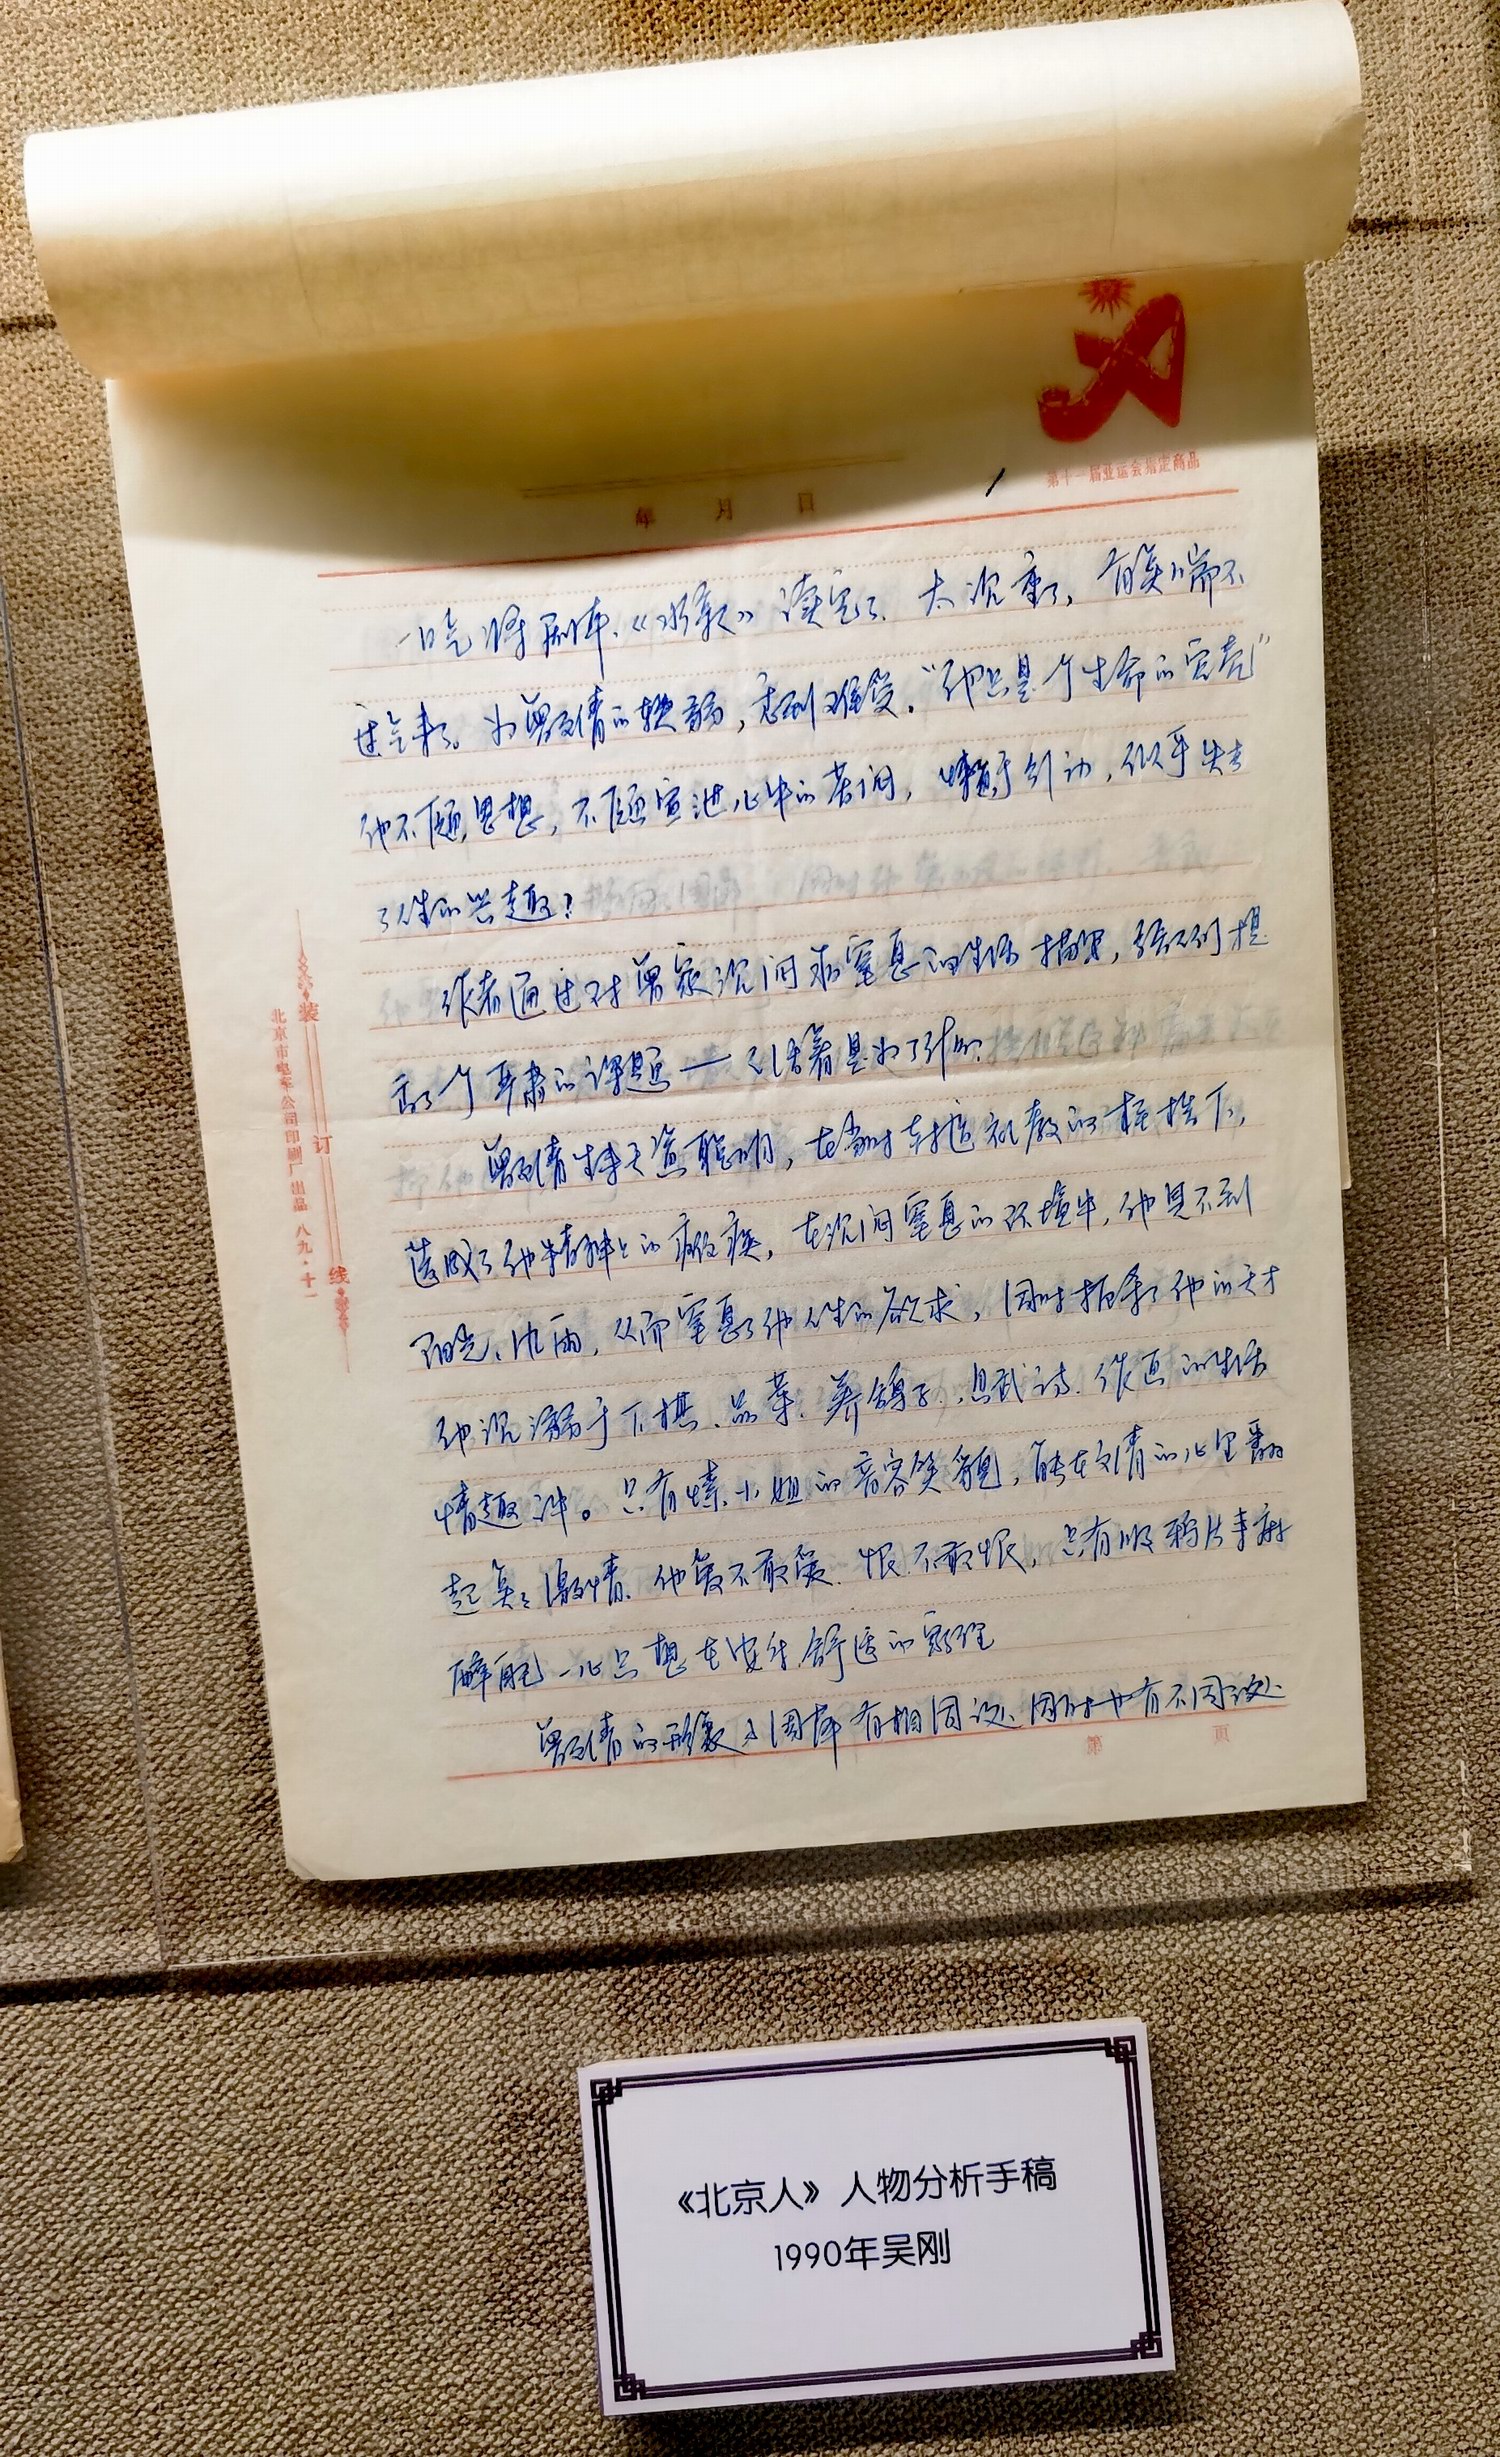 第十一届亚运会指定商品
年 月 日
一口气将剧本《北京人》读完了、太沉重了, 有点喘不
过气来。为曾文清的软弱, 感到难受。“他只是个生命的空壳”
他不愿思想, 不愿宣泄心中的苦闷, 懒于行动, 似乎失去
了人生的兴趣?
作者通过对曾家沉闷和窒息的生活描写, 给我们提
出了个严肃的课题——人活着是为了什么?
曾文清生来天资聪明, 在当时封建礼教的桎梏下,
造成了他精神上的瘫痪, 在沉闷窒息的环境中, 他见不到
阳光、风雨, 从而窒息了他人生的欲求, 同时扼杀了他的天才
他沉溺于下棋、品茶、养鸽子、赋诗、作画的生活
情趣中。只有愫小姐的音容笑貌, 能在文清的心里翻
起点点激情、他爱不敢爱、恨不敢恨, 只有吸鸦片来麻
醉自己 一心只想在安乐舒适的
曾文清的形象与周萍有相同之处、同时也有不同之处
第 页
装 订 线
北京市电车公司印刷厂出品 八九·十一
《北京人》人物分析手稿
1990年吴刚